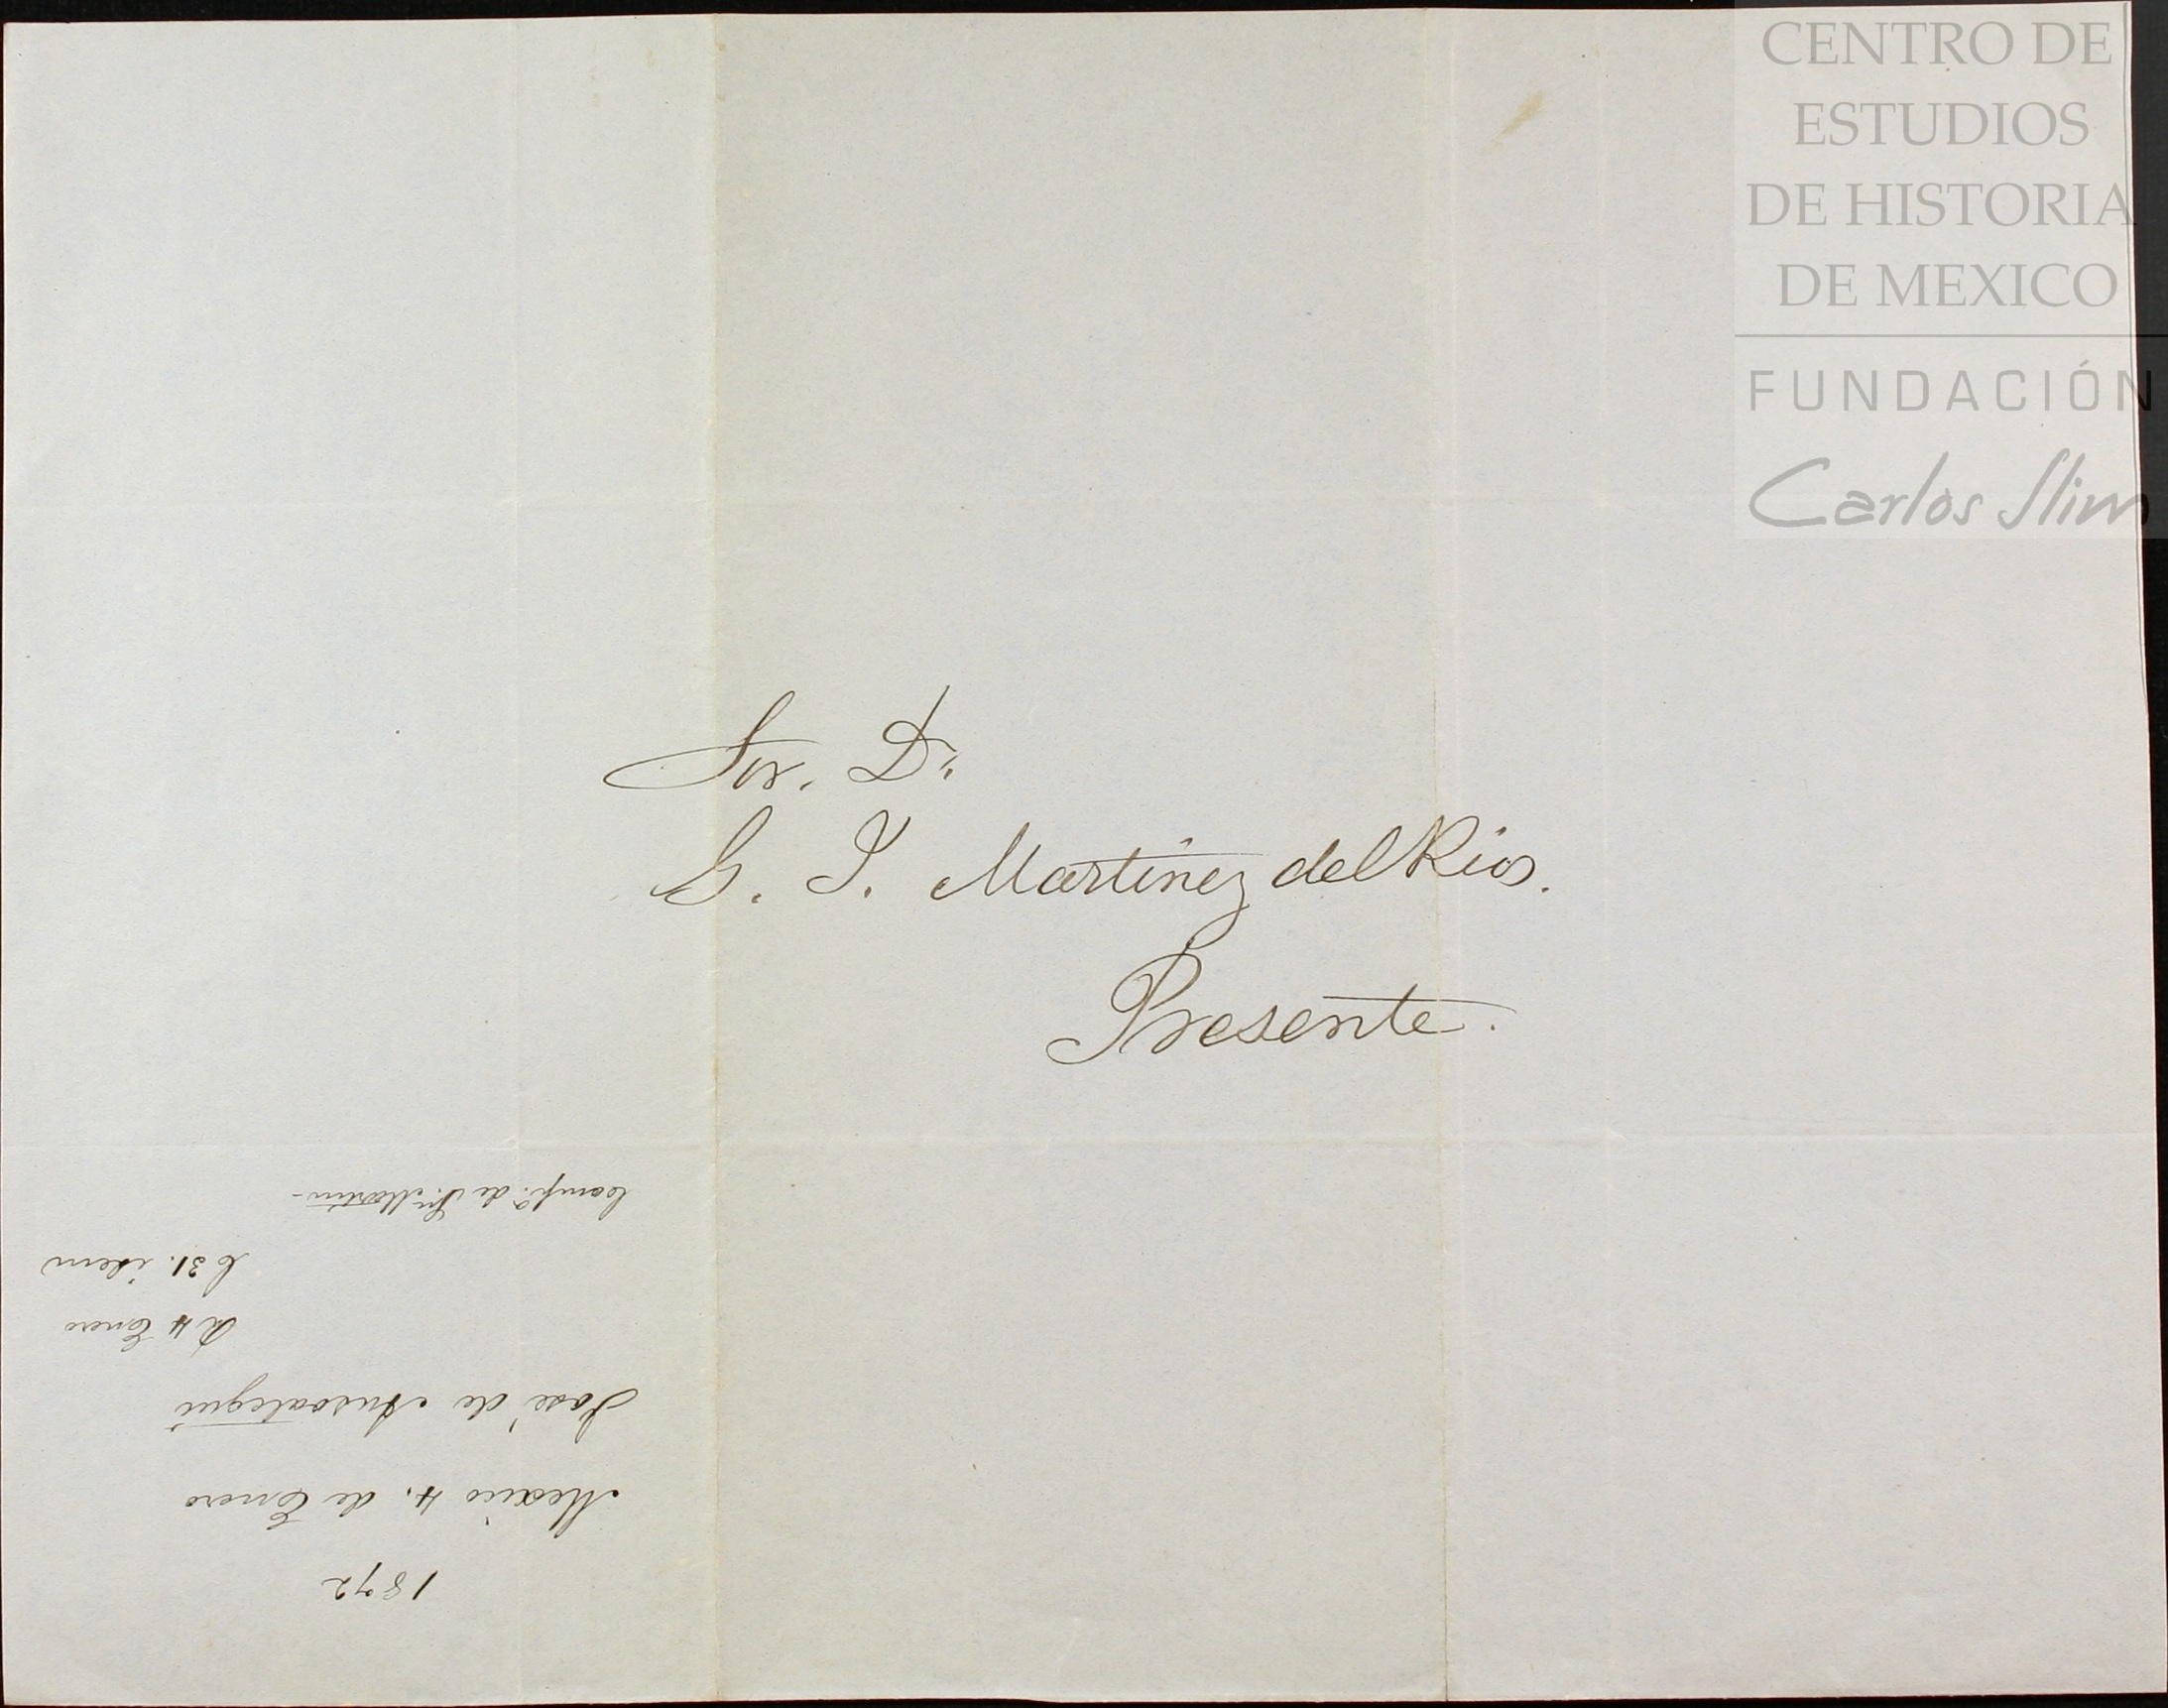 CENTRO DE
ESTUDIOS
DE HISTORIA
DE MEXICO
FUNDACIÓN
Carlos Slim
Sor. Dr.
G. I. Martinez del Rio.
Presente.
1872
Mexico 4. de Enero
José de Ansoategui
R 4 Enero
C 31. idem
Compª. de Sn. Martin